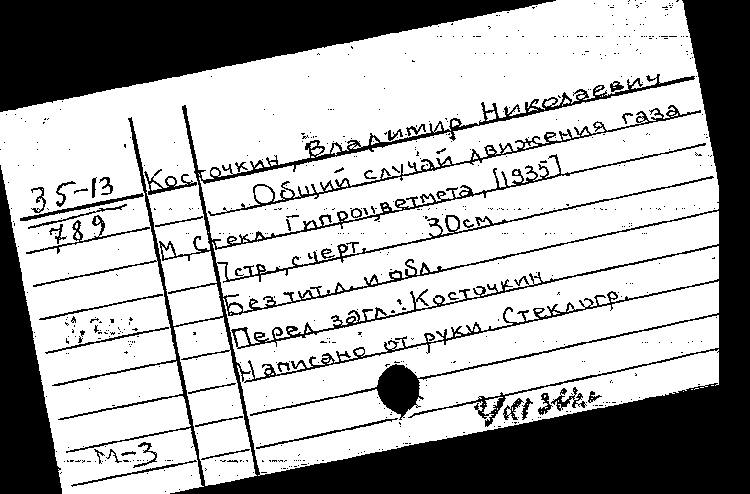 35-13
789
Косточкин, Владимир Николаевич
...Общий случай движения газа
М, Стекл. Гипроцветмета, [1935].
7стр., с черт. 30см.
Без тит.л. и обл.
Перед загл.: Косточкин.
Написано от руки. Стеклогр.
М-3